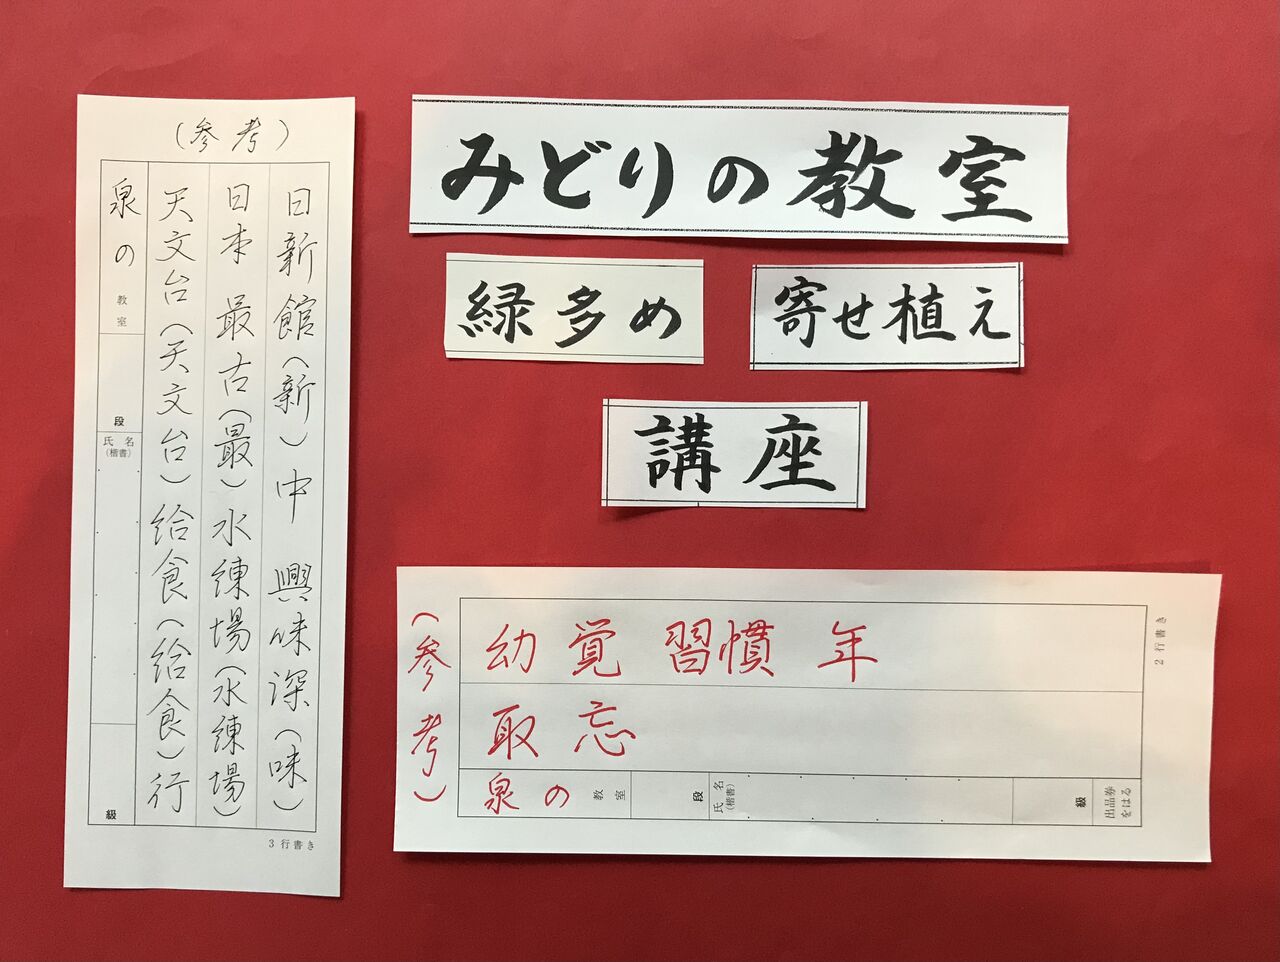 みどりの教室
緑多め
寄せ植え
講座
(参考)
日新館(新)中興味深(味)
日本最古(最)水練場(水練場)
天文台(天文台)給食(給食)行
泉の教室 段 氏名(楷書) 級
3行書き
(参考)
幼覚習慣年
取忘
泉の教室 段 氏名(楷書) 級 出品券をはる
2行書き